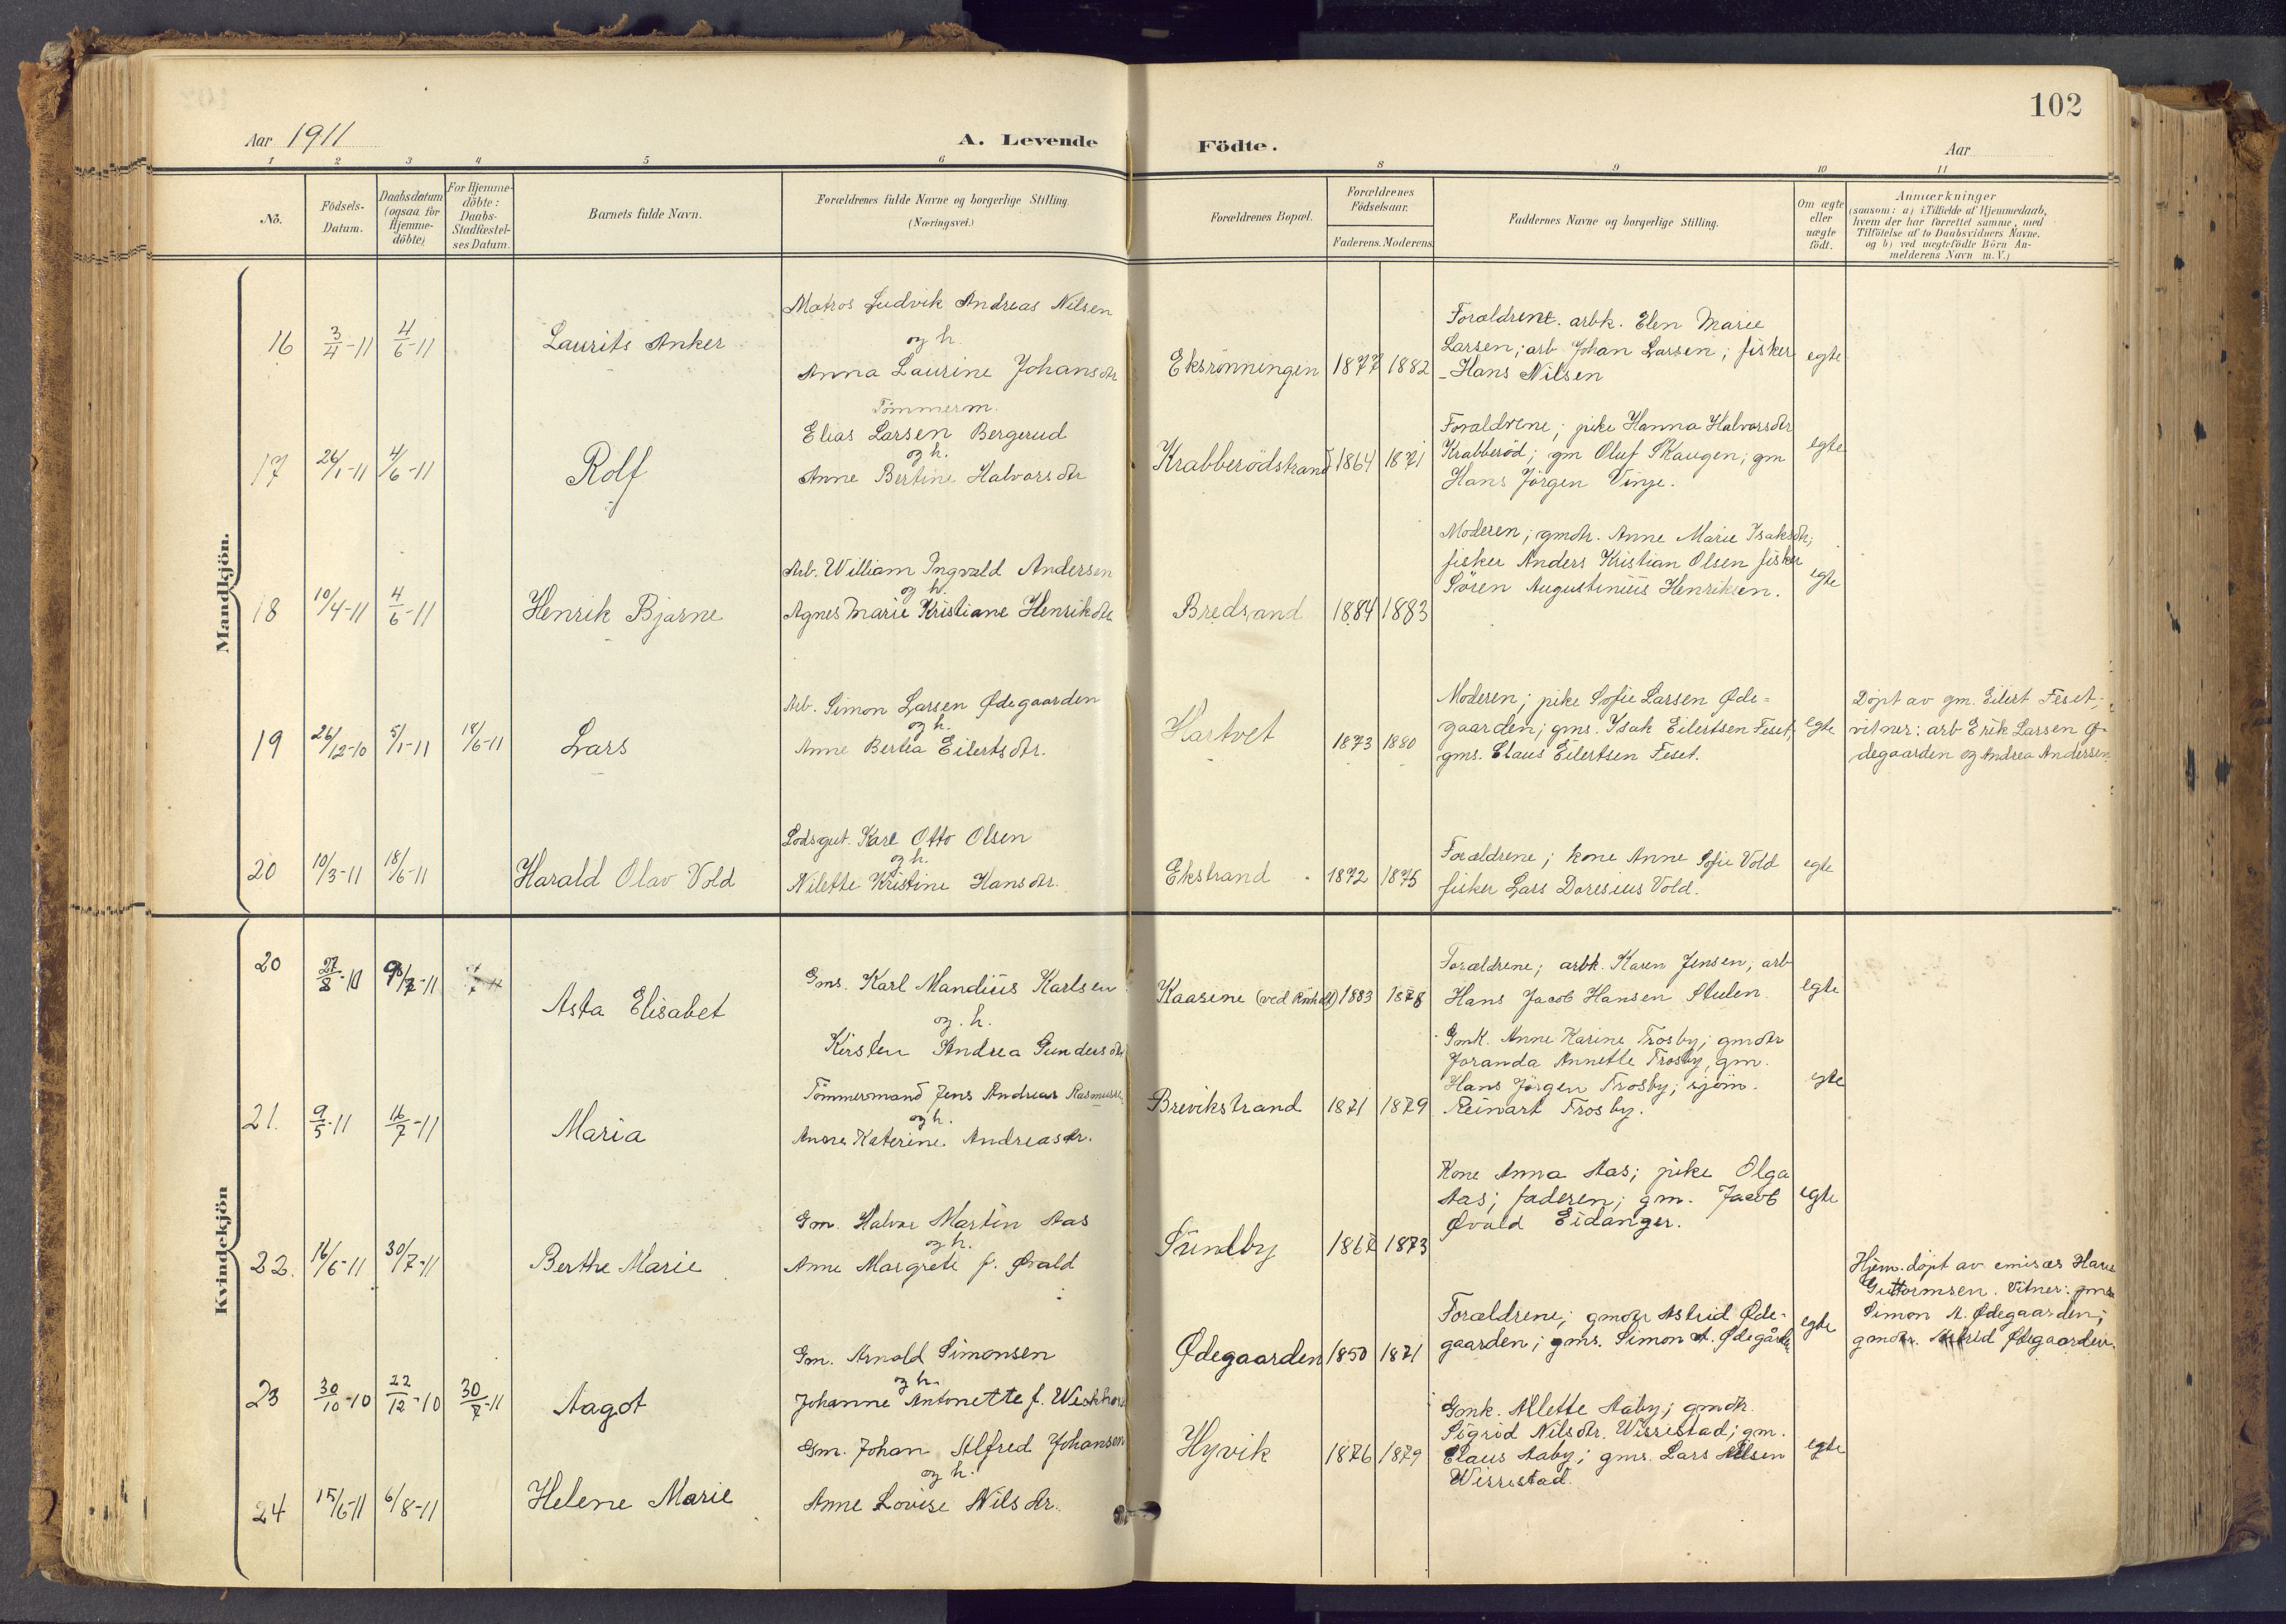 102
Aar 1911
A. Levende Födte.
Aar
1 2 3 4 5 6 8 9 10 11
No.
Födsels-
Datum.
Daabsdatum
(ogsaa for
Hjemme-
döbte)
For Hjemme-
döbte:
Daabs-
Stadfæstel-
ses Datum.
Barnets fulde Navn.
Forældrenes fulde Navne og borgerlige Stilling.
(Næringsvei.)
Forældrenes Bopæl.
Forældrenes
Födselsaar.
Faderens. Moderens
Faddernes Navne og borgerlige Stilling.
Om ægte
eller
uægte
födt.
Anmærkninger
(saasom: a) i Tilfælde af Hjemmedaab,
hvem der har forrettet samme, med
Tilföielse af to Daabsvidners Navne.
og b) ved uægtefödte Börn An-
melderens Navn m. V.)
Mandkjön.
16 3/4-11 4/6-11 Laurits Anker
Matros Ludvik Andreas Nilsen
og h.
Anna Laurine Johansdtr
Eksrönningen 1877 1882
Forældrene. arbk. Elen Marie
Larsen; arb Johan Larsen; fisker
Hans Nilsen
egte
17 26/1-11 4/6-11 Rolf
Tömmerm.
Elias Larsen Bergerud
og h.
Anne Bertine Halvorsdtr
Krabberödstrand 1864 1871
Forældrene; pike Hanna Halvorsdtr
Krabberöd; gm Oluf Skaugen; gm
Hans Jörgen Vinje.
egte
18 10/4-11 4/6-11 Henrik Bjarne
Arb. William Ingvald Andersen
og h.
Agnes Marie Kristiane Henriksdtr
Bredsand 1884 1883
Moderen; gmdtr. Anne Marie Isaksdtr;
fisker Anders Kristian Olsen fisker
Sören Augustinius Henriksen.
egte
19 26/12-10 5/1-11 18/6-11 Lars
Arb. Simon Larsen Ødegaarden
og h.
Anne Bertea Eilertsdtr.
Hartvet 1873 1880
Moderen; pike Sofie Larsen Øde=
gaarden; gms. Isak Eilertsen Feset,
gms. Claus Eilertsen Feset.
egte
Döpt av gm. Eilert Feset;
vitner: arb Erik Larsen Ø-
degaarden og Andrea Andersen.
20 10/3-11 18/6-11 Harald Olav Vold
Lodsgut. Karl Otto Olsen
og h.
Nilette Kristine Hansdtr.
Ekstrand 1872 1875
Forældrene; kone Anne Sofie Vold
fisker Lars Doresius Vold.
egte
Kvindekjön
20 27/8-10 Asta Elisabet
Gms. Karl Mandius Karlsen
og. h.
Kirsten Andrea Gundersdtr
Kaasene 1883 1878
Forældrene; arbk. Karen Jensen, arb
Hans Jacob Hansen Stulen.
egte
21. 9/5-11 16/7-11 Maria
Tömmermand Jens Andreas Rasmussen
og h.
Anna Katerine Andreasdtr.
Brevikstrand 1871 1879
Gmk. Anne Karine Trosby; gmdtr
Joranda Annette Trosby, gm.
Hans Jörgen Trosby; sjöm.
Reinart Trosby.
egte
22. 16/6-11 30/7-11 Berthe Marie
Gm. Halvor Martin Aas
og h.
Anne Margrete f. Øvald
Sundby 1867 1873
Kone Anna Aas; pike Olga
Aas; faderen; gm. Jacob
Øvald Eidanger.
egte
23 30/10-10 22/12-10 30/7-11 Aagot
Gm. Arnold Simonsen
og h.
Johanne Antonette f.
Ødegaarden 1850 1871
Forældrene; gmdtr Astrid Øde-
gaarden; gms. Simon A. Ødegården
egte
Hjem. döpt av emisær Hans
Guttormsen. Vitner: gms
Simon A. Ødegaarden;
gmdtr. Astrid Ødegaarden.
24 15/6-11 6/8-11 Helene Marie
Gm. Johan Alfred Johansen
og h.
Anne Lovise Nilsdtr.
Hyvik 1876 1879
Gmk. Allette Aaby; gmdtr.
Sigrid Nilsdtr. Wissestad; gm.
Claus Aaby; gms. Lars Nilsen
Wissestad.
egte